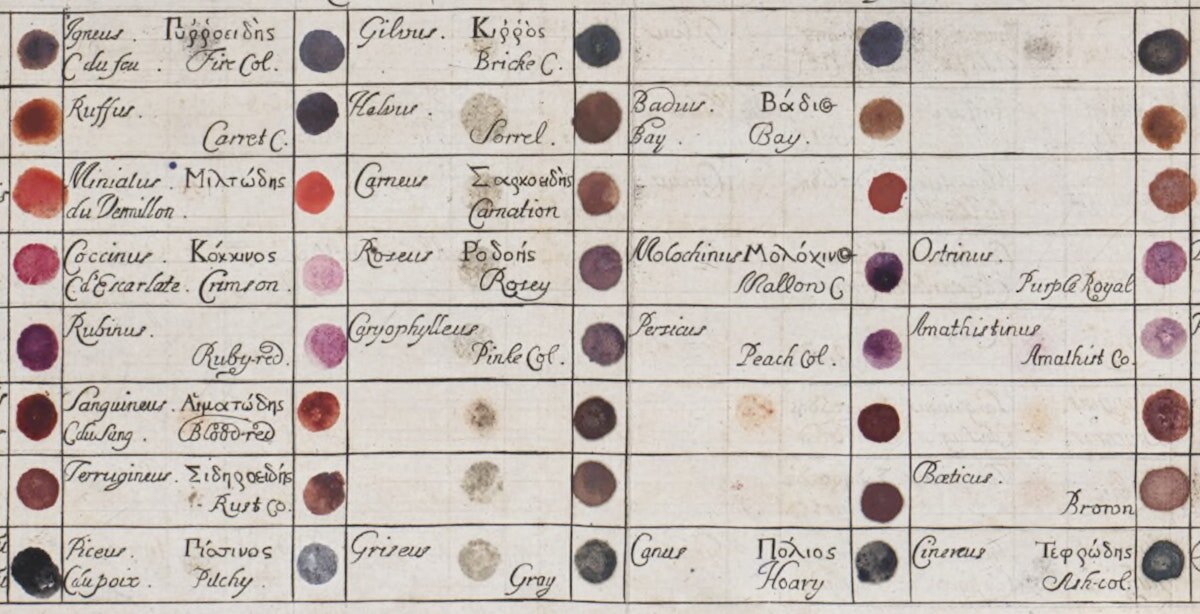 Igneus. Πυῤῥοειδὴς
C du feu. Fire Col.
Gilvus. Κιῤῥὸς
Bricke C.
Ruffus.
Carret C.
Helvus.
Sorrel.
Badius. Βάδιος
Bay. Bay.
Miniatus. Μιλτώδης
du Vermillon.
Carneus. Σαρκοειδής
Carnation
Coccinus. Κόκκινος
Cd'Escarlate. Crimson.
Roseus Ροδοης
Rosey
Molochinus Μολόχινος
Mallow C
Ostrinus.
Purple Royal
Rubinus.
Ruby-red.
Caryophylleus
Pinke Col.
Persicus
Peach Col.
Amathistinus
Amathist Co.
Sanguineus. Αἱματώδης
C du sang. Blood-red
Ferrugineus. Σιδηροειδής
Rust Co.
Bœticus.
Brown
Piceus. Πίσσινος
C du poix. Pitchy.
Griseus
Gray
Canus Πόλιος
Hoary
Cinereus Τεφρώδης
Ash-col.